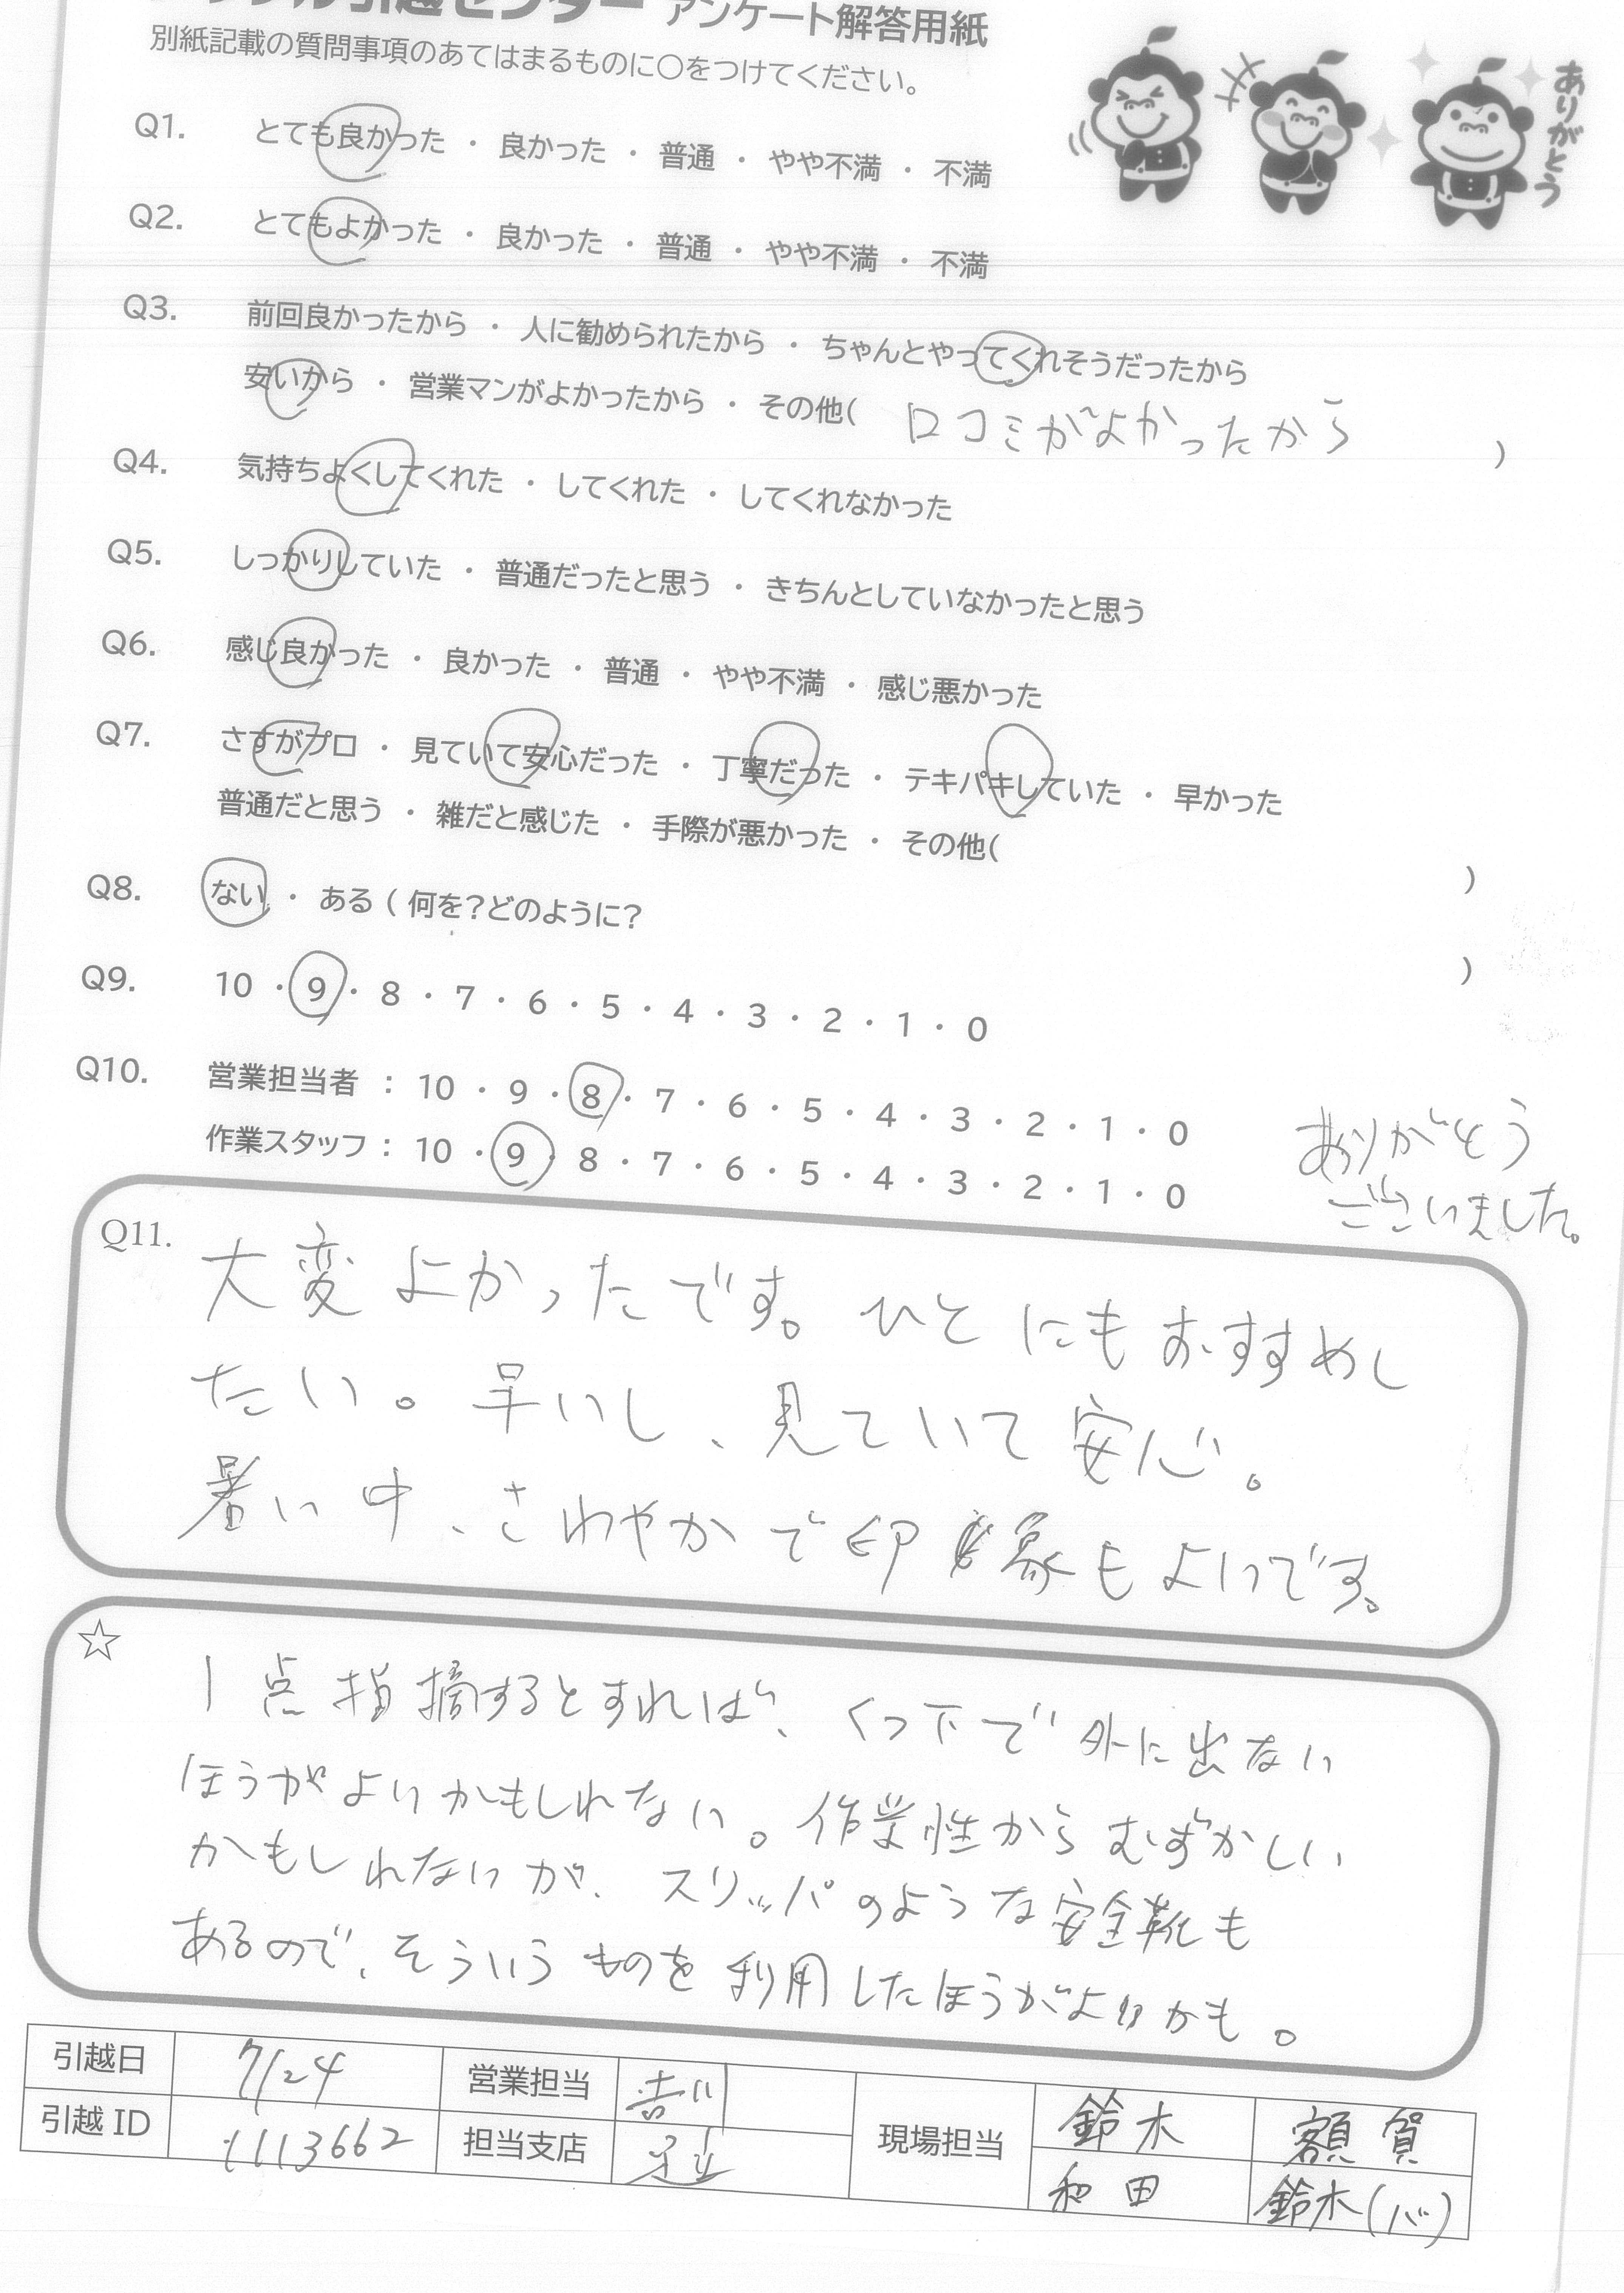 引越センター アンケート解答用紙
別紙記載の質問事項のあてはまるものに○をつけてください。
ありがとう
Q1. とても良かった ・ 良かった ・ 普通 ・ やや不満 ・ 不満
Q2. とてもよかった ・ 良かった ・ 普通 ・ やや不満 ・ 不満
Q3. 前回良かったから ・ 人に勧められたから ・ ちゃんとやってくれそうだったから
安いから ・ 営業マンがよかったから ・ その他( 口コミがよかったから )
Q4. 気持ちよくしてくれた ・ してくれた ・ してくれなかった
Q5. しっかりしていた ・ 普通だったと思う ・ きちんとしていなかったと思う
Q6. 感じ良かった ・ 良かった ・ 普通 ・ やや不満 ・ 感じ悪かった
Q7. さすがプロ ・ 見ていて安心だった ・ 丁寧だった ・ テキパキしていた ・ 早かった
普通だと思う ・ 雑だと感じた ・ 手際が悪かった ・ その他( )
Q8. ない ・ ある ( 何を?どのように? )
Q9. 10 ・ 9 ・ 8 ・ 7 ・ 6 ・ 5 ・ 4 ・ 3 ・ 2 ・ 1 ・ 0
Q10. 営業担当者 : 10 ・ 9 ・ 8 ・ 7 ・ 6 ・ 5 ・ 4 ・ 3 ・ 2 ・ 1 ・ 0
作業スタッフ : 10 ・ 9 ・ 8 ・ 7 ・ 6 ・ 5 ・ 4 ・ 3 ・ 2 ・ 1 ・ 0
ありがとう
ございました。
Q11. 大変よかったです。ひとにもおすすめし
たい。早いし、見ていて安心。
暑い中、さわやかで印象もよいです。
☆ 1点指摘するとすれば、くつ下で外に出ない
ほうがよいかもしれない。作業性からむずかしい
かもしれないが、スリッパのような安全靴も
あるので、そういうものを利用したほうがよいかも。
引越日 7/24 営業担当 吉川 現場担当 鈴木 額賀
引越 ID 1113662 担当支店 足立 和田 鈴木(バ)